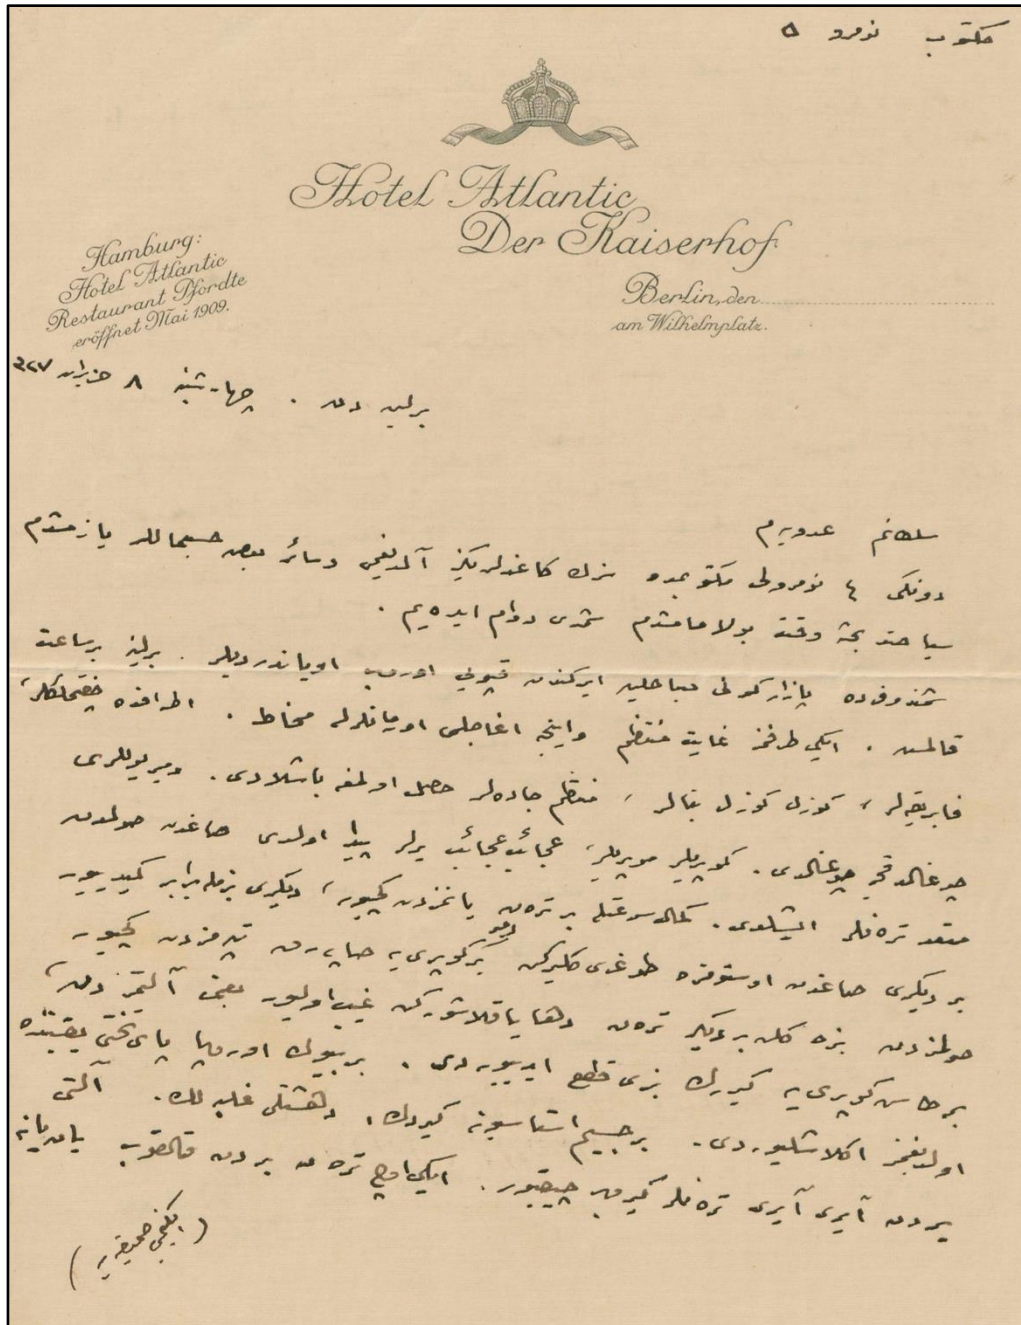 مكتوب نومرو ٥
Hotel Atlantic
Der Kaiserhof
Hamburg:
Hotel Atlantic
Restaurant Pfordte
eröffnet Mai 1909.
Berlin, den
am Wilhelmplatz.
برلین دن . چهارشنبه ٨ حزیران ٣٢٧
سلطانم عدویه م
دونكی ٤ نومرولی مكتوبمده سزك كاغدلریكز آلدیغمی وسائر بعض حسبحاللر یازمشدم
سیاحت بحثنه وقت بولامامشدم شمدی دوام ایده یم .
شمندوفرده پازار كونی صباحلین ایركندن قپویی اوروب اویاندردیلر . برلینه بر ساعت
قالمش . ایكی طرفمز غایت منتظم واینجه اغاجلی اورمانلرله محاط . اطرافده
فابریقه لر ، كوزل كوزل بنالر ، منتظم جاده لر حصوله اولمغه باشلادی . دمیریوللری
چوغالدقجه چوغالدی . كوپریلر موپریلر ، عجائب عجائب یرلر پیدا اولدی صاغدن صولدن
متعدد ترەنلر ایشلیور . كمال سرعتله بر ترەن یانمزدن كچیور ، دیكری بزمله برابر كیدییور
بر دیكری صاغدن اوستومزه طوغری كلیركن بر كوپری یه صاپه رق تپه مزدن كچیور
صولمزدن بزه كلن بر دیكر ترەن دها یاقلاشوركن غیب اولیور بعضا آلتمزدن ،
بر طاش كوپری یه كیره رك بزی قطع ایدییوردی . بر بیوك اوروپا پای تختی یقیننده
اولدیغمز اكلاشیلیوردی . بر جسیم استاسیونه كیردك . دهشتلی غلبه لك . آلتی
یردن آیری آیری ترەنلر كیروب چیقیور . ایكی اوچ ترەن بردن قالقوب یان یانه
( ایكنجی صحیفه یه )